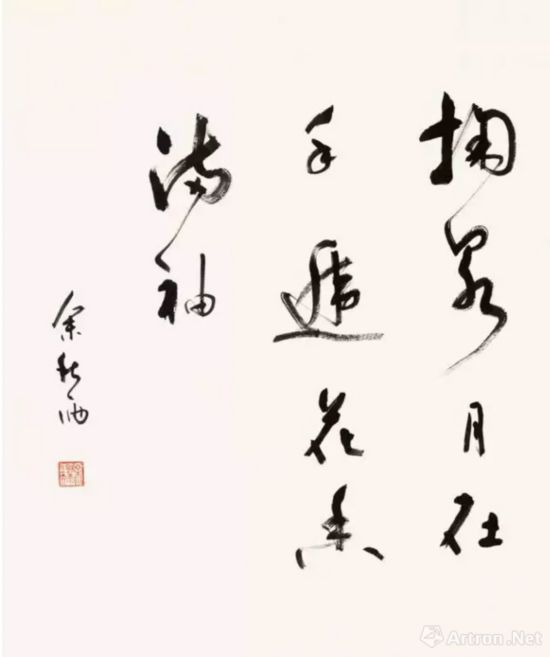 掬泉月在
手遞花香
滿袖
余秋雨
Artron.Net